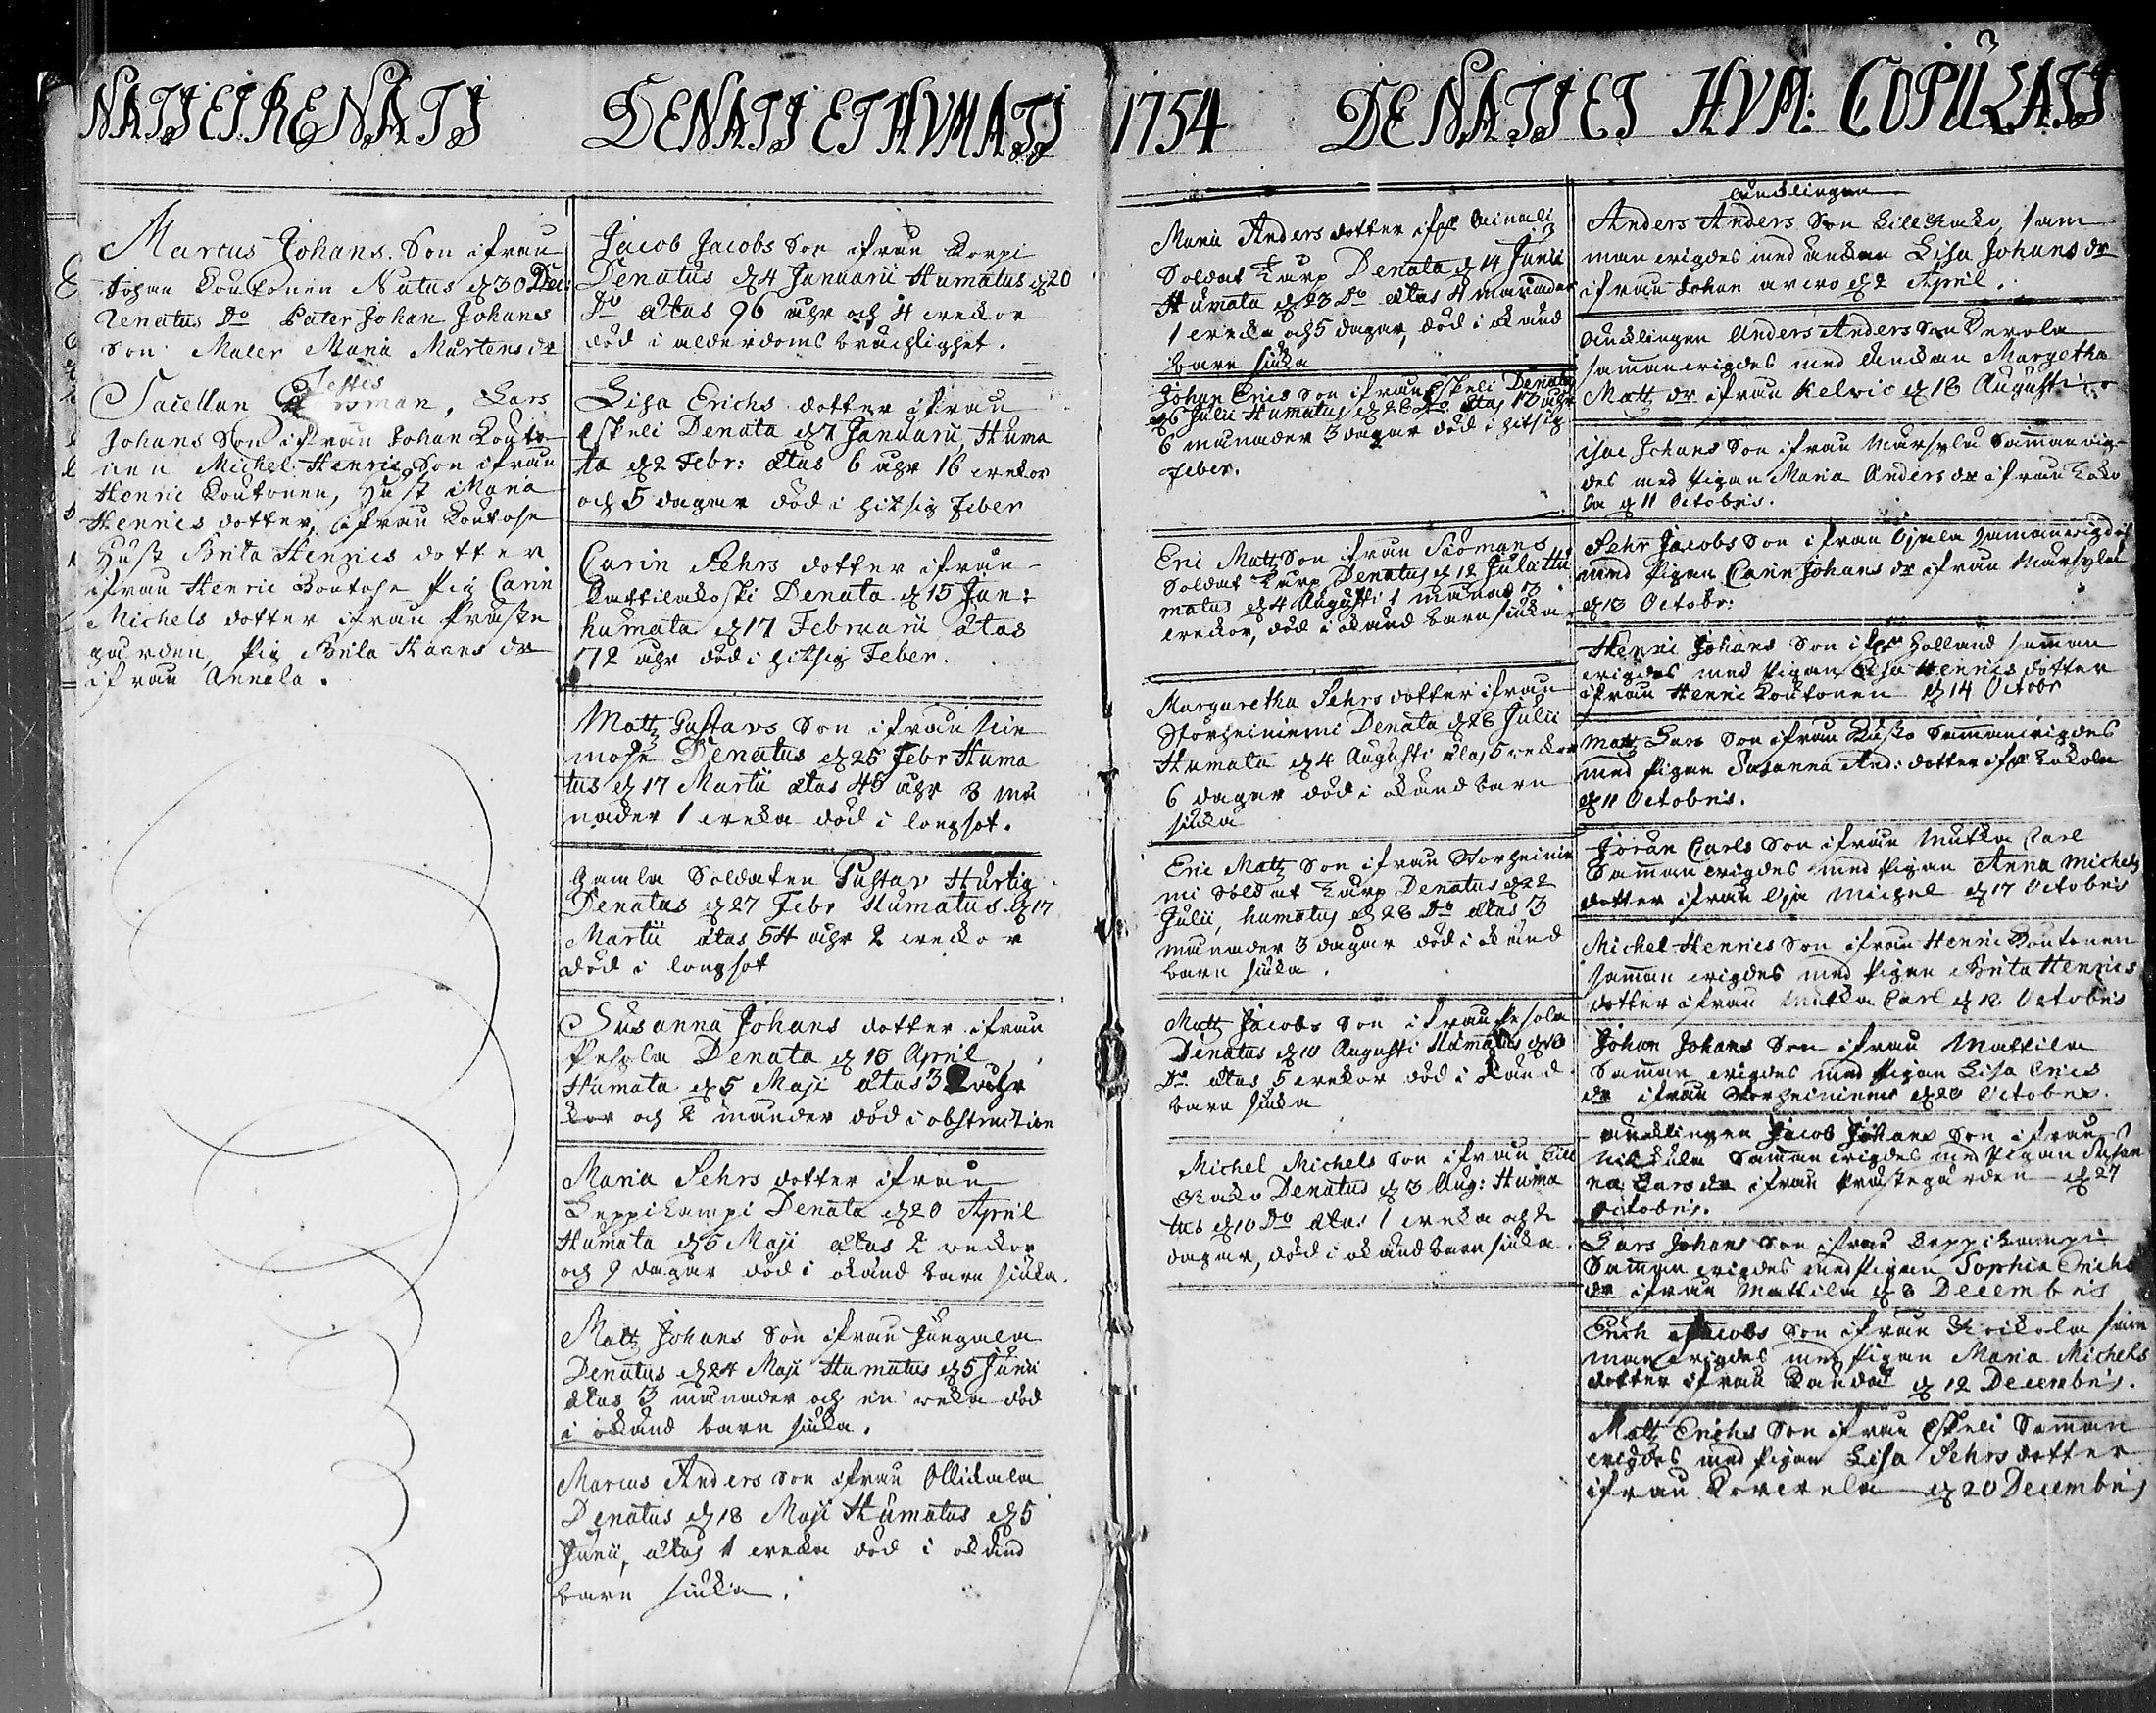 NATI ET RENATI
Marcus Johans Son ifrån
Johan Koutonen Natus d 30 Dec:
Renatus Do Pater Johan Johans
Son Mater Maria Mårtens dr
Testes
Sacellan Forsman, Lars
Johans Son ifrån Johan Kouto
nen Michel Henrics Son ifrån
Henric Koutonen, Hust Maria
Henrics dotter, ifrån
Hust Brita Henrics dotter
ifrån Henric Pig Carin
Michels dotter ifrån Präste
gården, Pig Brita Hans dr
ifrån Annala.
DENATI ET HVMATI
Jacob Jacobs Son ifrån Korpi
Denatus d 4 Januarii Humatus d 20
Do ætas 96 åhr och 4 wekor
död i ålderdoms bräcklighet.
Lisa Erichs dotter ifrån
Eskeli Denata d 7 Januarii, Huma
ta d 2 Febr: ætas 6 åhr 16 wekor
och 5 dagar död i hitsig feber
Carin Pehrs dotter ifrån
Kattilakoski Denata d 15 Jan:
humata d 17 Februarii ætas
72 åhr död i hitsig Feber.
Matz Gustavs Son ifrån
Denatus d 25 Febr Huma
tus d 17 Martii ætas 45 åhr 3 må
nader 1 weka död i longsot.
Gamla Soldaten Gustav Hurtig
Denatus d 27 Febr Humatus d 17
Martii ætas 54 åhr 2 wekor
död i longsot
Susanna Johans dotter ifrån
Pesola Denata d 15 April
Humata d 5 Maji ætas 32 åhr
kor och 2 månader död i obstruction
Maria Pehrs dotter ifrån
Leppilampi Denata d 20 April
Humata d 5 Maji ætas 2 wekor
och 9 dagar död i okänd barn siuka.
Matz Johans Son ifrån Jungala
Denatus d 24 Maji Humatus d 5 Junii
ætas 3 månader och en weka död
i okänd barn siuka.
Marcus Anders son ifrån Ollikala
Denatus d 18 Maji Humatus d 5
Junii, ætas 1 weka död i okänd
barn siuka.
1754 DENATI ET HVM: COPULATI
Maria Anders dotter ifr
Soldat Torp Denata d 14 Junii
Humata d 23 Do ætas 4 månader
1 weka och 5 dagar, död i okänd
barn siuka
Johan Erics son ifrån Eskeli Denatus
d 6 Julii Humatus d Do ætas åhr
6 månader 3 dagar död i hitsig
Feber.
Eric Matz Son ifrån Siömans
Soldat Torp Denatus d 12 Julii Hu
matus d 4 Augusti 1 månad 3
wekor, död i okänd barn siuka
Margaretha Pehrs dotter ifrån
Storheiniemi Denata d 26 Julii
Humata d 4 Augusti ætas 5 wekor
6 dagar död i okänd barn
siuka
Eric Matz Son ifrån Storheinie
mi Soldat Torp Denatus d 22
Julii, humatus d 28 Do ætas 3
månader 3 dagar död i okänd
barn siuka.
Matz Jacobs Son ifrån Pesola
Denatus d 10 Augusti Humatus d 18
Do ætas 5 wekor död i okänd
barn siuka
Michel Michels son ifrån Lill
Kako Denatus d 3 Aug: Huma
tus d 10 Do ætas 1 weka och 2
dagar, död i okänd barn siuka.
Änklingen
Anders Anders Son Lill Kako, sam
man wigdes med Änkan Lisa Johans dr
ifrån Johan d 2 April.
Änklingen Anders Anders Son Kerola
sammanwigdes med Änkan Margetha
Matz dr ifrån Kelvio d 18 Augusti
Isac Johans Son ifrån Marsylä Samman wig-
des med Pigan Maria Anders dr ifrån Kako
la d 11 Octobris.
Pehr Jacobs Son ifrån Ojala sammanwigdes
med Pigan Carin Johans dr ifrån Marsylä
d 13 Octobr:
Henric Johans Son ifr Holland samman
wigdes med Pigan Lisa Henrics dotter
ifrån Henric Koutonen d 14 Octobr
Matz Lars Son ifrån Sammanwigdes
med Pigan Susanna And: dotter ifr Kakola
d 11 Octobris.
Jöran Carls Son ifrån Mutka Carl
Samman wigdes med Pigan Anna Michels
dotter ifrån Oja Michel d 17 Octobris
Michel Henrics Son ifrån Henric Koutonen
samman wigdes med Pigan Brita Henrics
dotter ifrån Mutka Carl d 18 Octobris
Johan Johans Son ifrån Mattila
Samman wigdes med Pigan Lisa Erics
dr ifrån Storheiniemi d 20 Octobris.
Änklingen Jacob Johans Son ifrån
Nikkula Samman wigdes med Pigan Susan
na Lars dr ifrån Prästegården d 27
Octobris.
Lars Johans Son ifrån Leppilampi
Samman wigdes med Pigan Sophia Erichs
dr ifrån Mattila d 8 Decembris
Erich Jacobs Son ifrån Koikola sam
man wigdes med Pigan Maria Michels
dotter ifrån d 12 Decembris.
Matz Erichs Son ifrån Eskeli Samman
wigdes med Pigan Lisa Pehrs dotter
ifrån Korvela d 20 Decembris